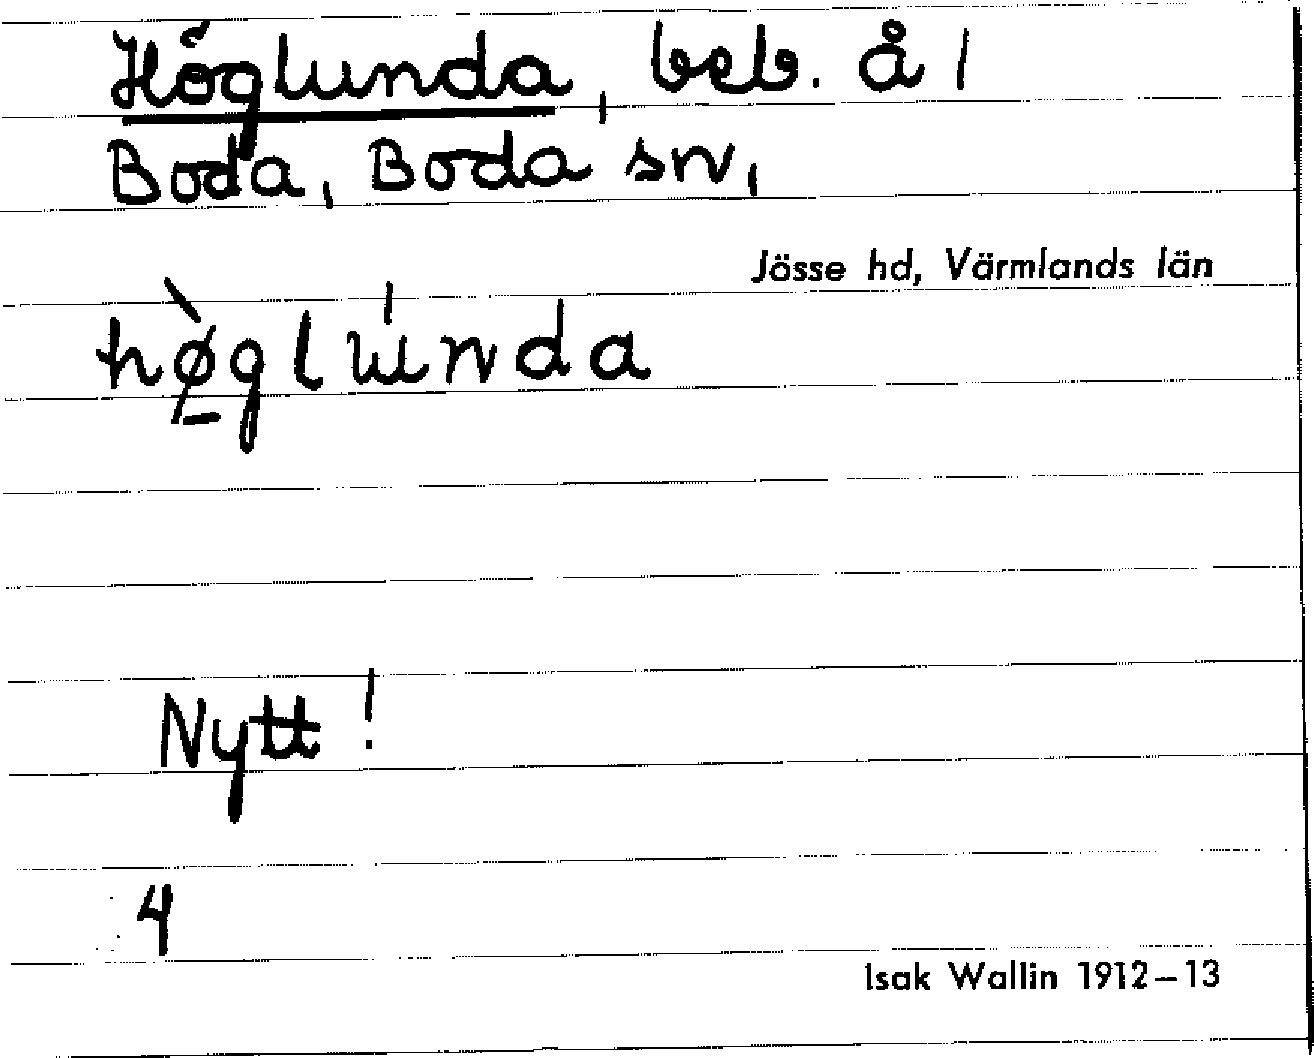 Höglunda, beb. å 1
Boda, Boda sn,
Jösse hd, Värmlands län
hø̀glúnda
Nytt!
4
Isak Wallin 1912–13